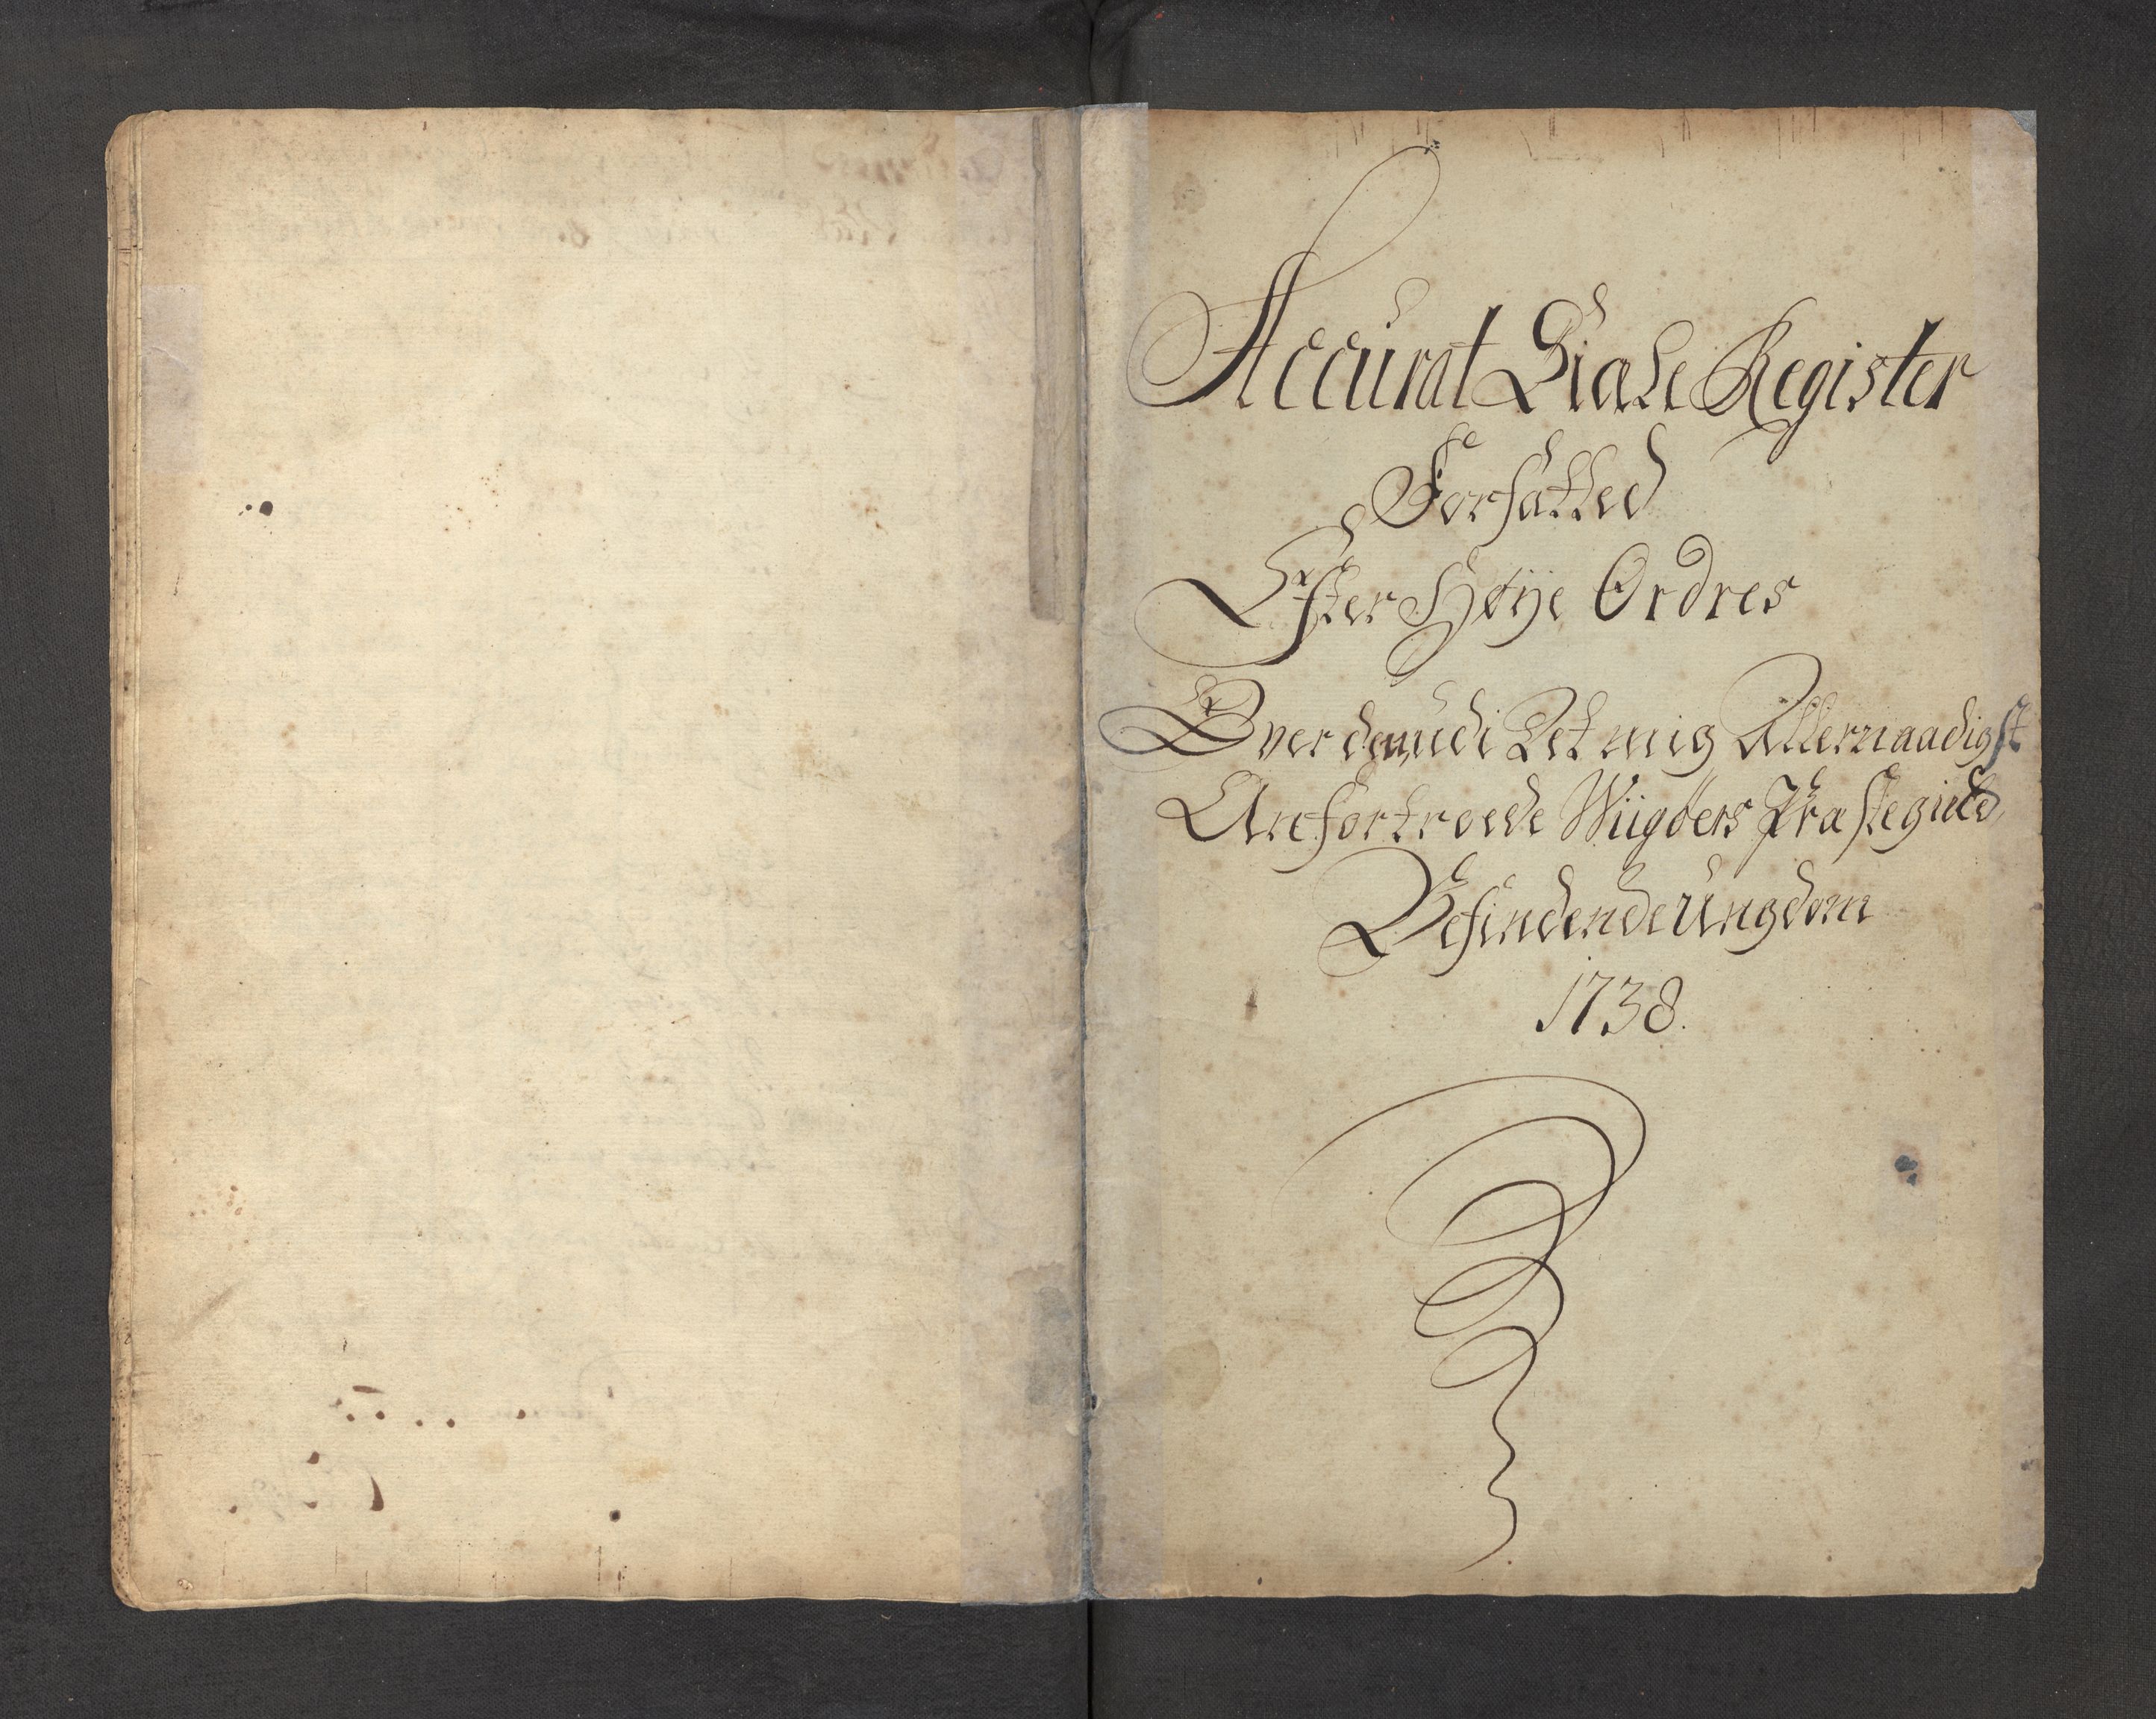 Accurat Siæle Register
Forfatted
Efter Høye Ordres
Over den udi Det mig Allernaadigst
Anfortroede Wiigøers Præstegield
Befindende Ungdom
1738.